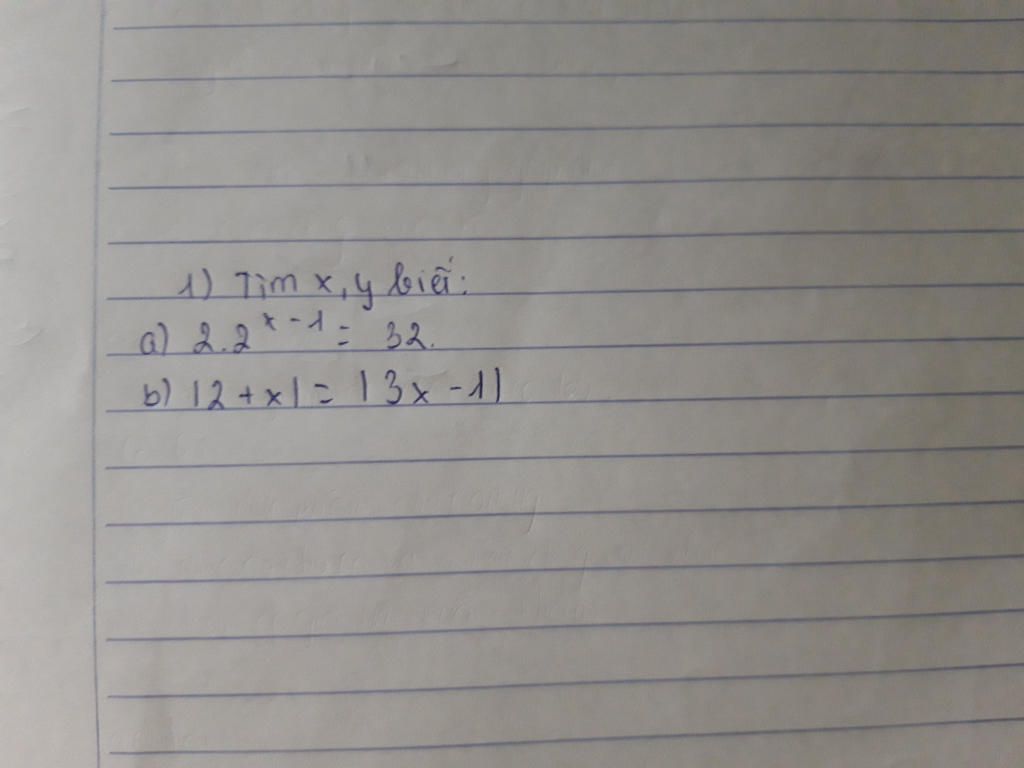 1) Tìm x, y biết:
a) 2.2^{x-1} = 32.
b) |2+x| = |3x-1|